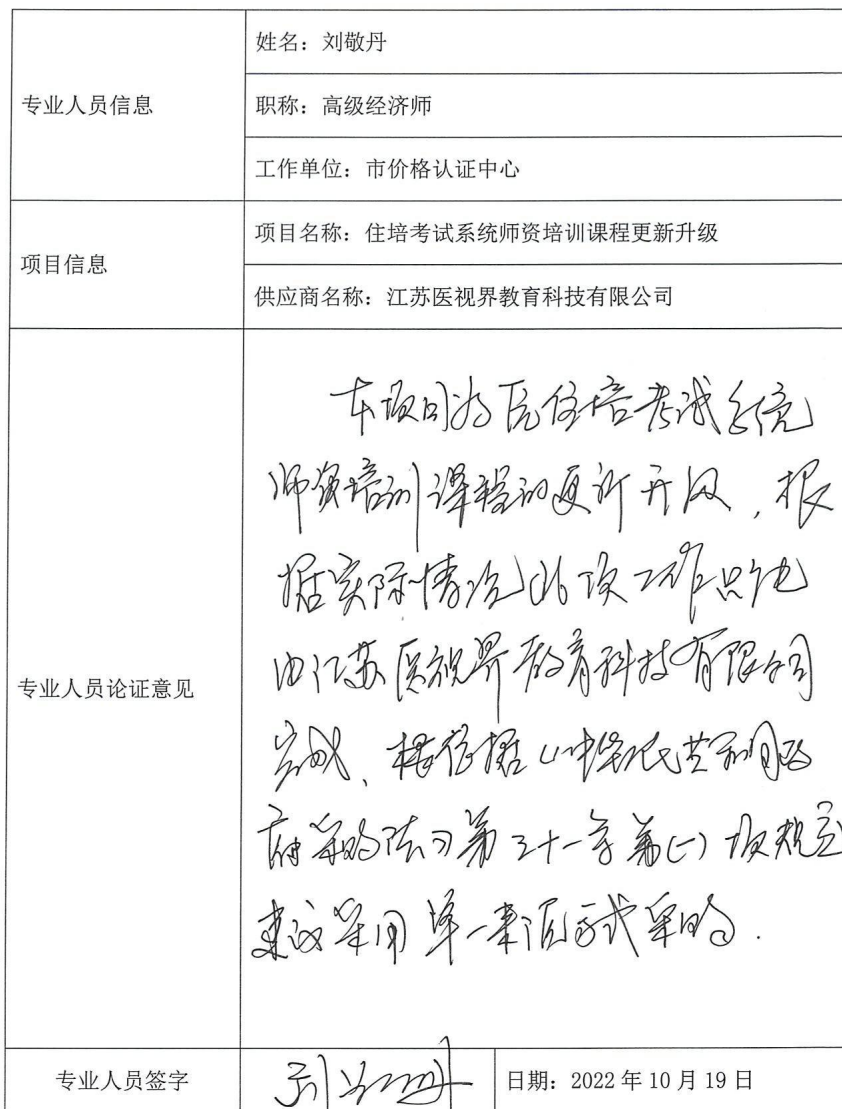 专业人员信息
姓名：刘敬丹
职称：高级经济师
工作单位：市价格认证中心
项目信息
项目名称：住培考试系统师资培训课程更新升级
供应商名称：江苏医视界教育科技有限公司
专业人员论证意见
本项目为医住培考试系统
师资培训课程的更新升级，根
据实际情况此项工作只能
由江苏医视界教育科技有限公司
完成、依据《中华人民共和国政
府采购法》第三十一条第(一)项规定
建议采用单一来源方式采购.
专业人员签字
刘敬丹
日期：2022年10月19日